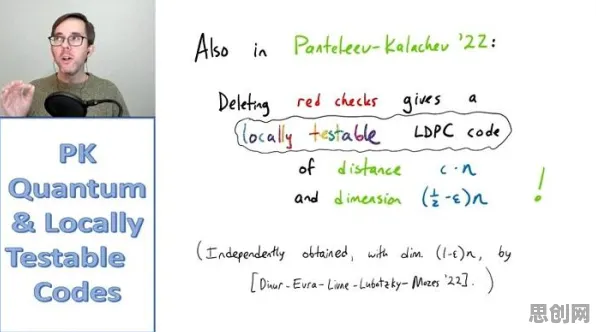 Also in Panteleev-Kalachev '22:
Deleting red checks gives a
locally testable LDPC code
of distance c·n
and dimension (1/2-ε)n !
(Independently obtained, with dim. (1-ε)n, by
[Dinur-Evra-Livne-Lubotzky-Mozes '22].)
PK
Quantum
& Locally
Testable
Codes
思创网